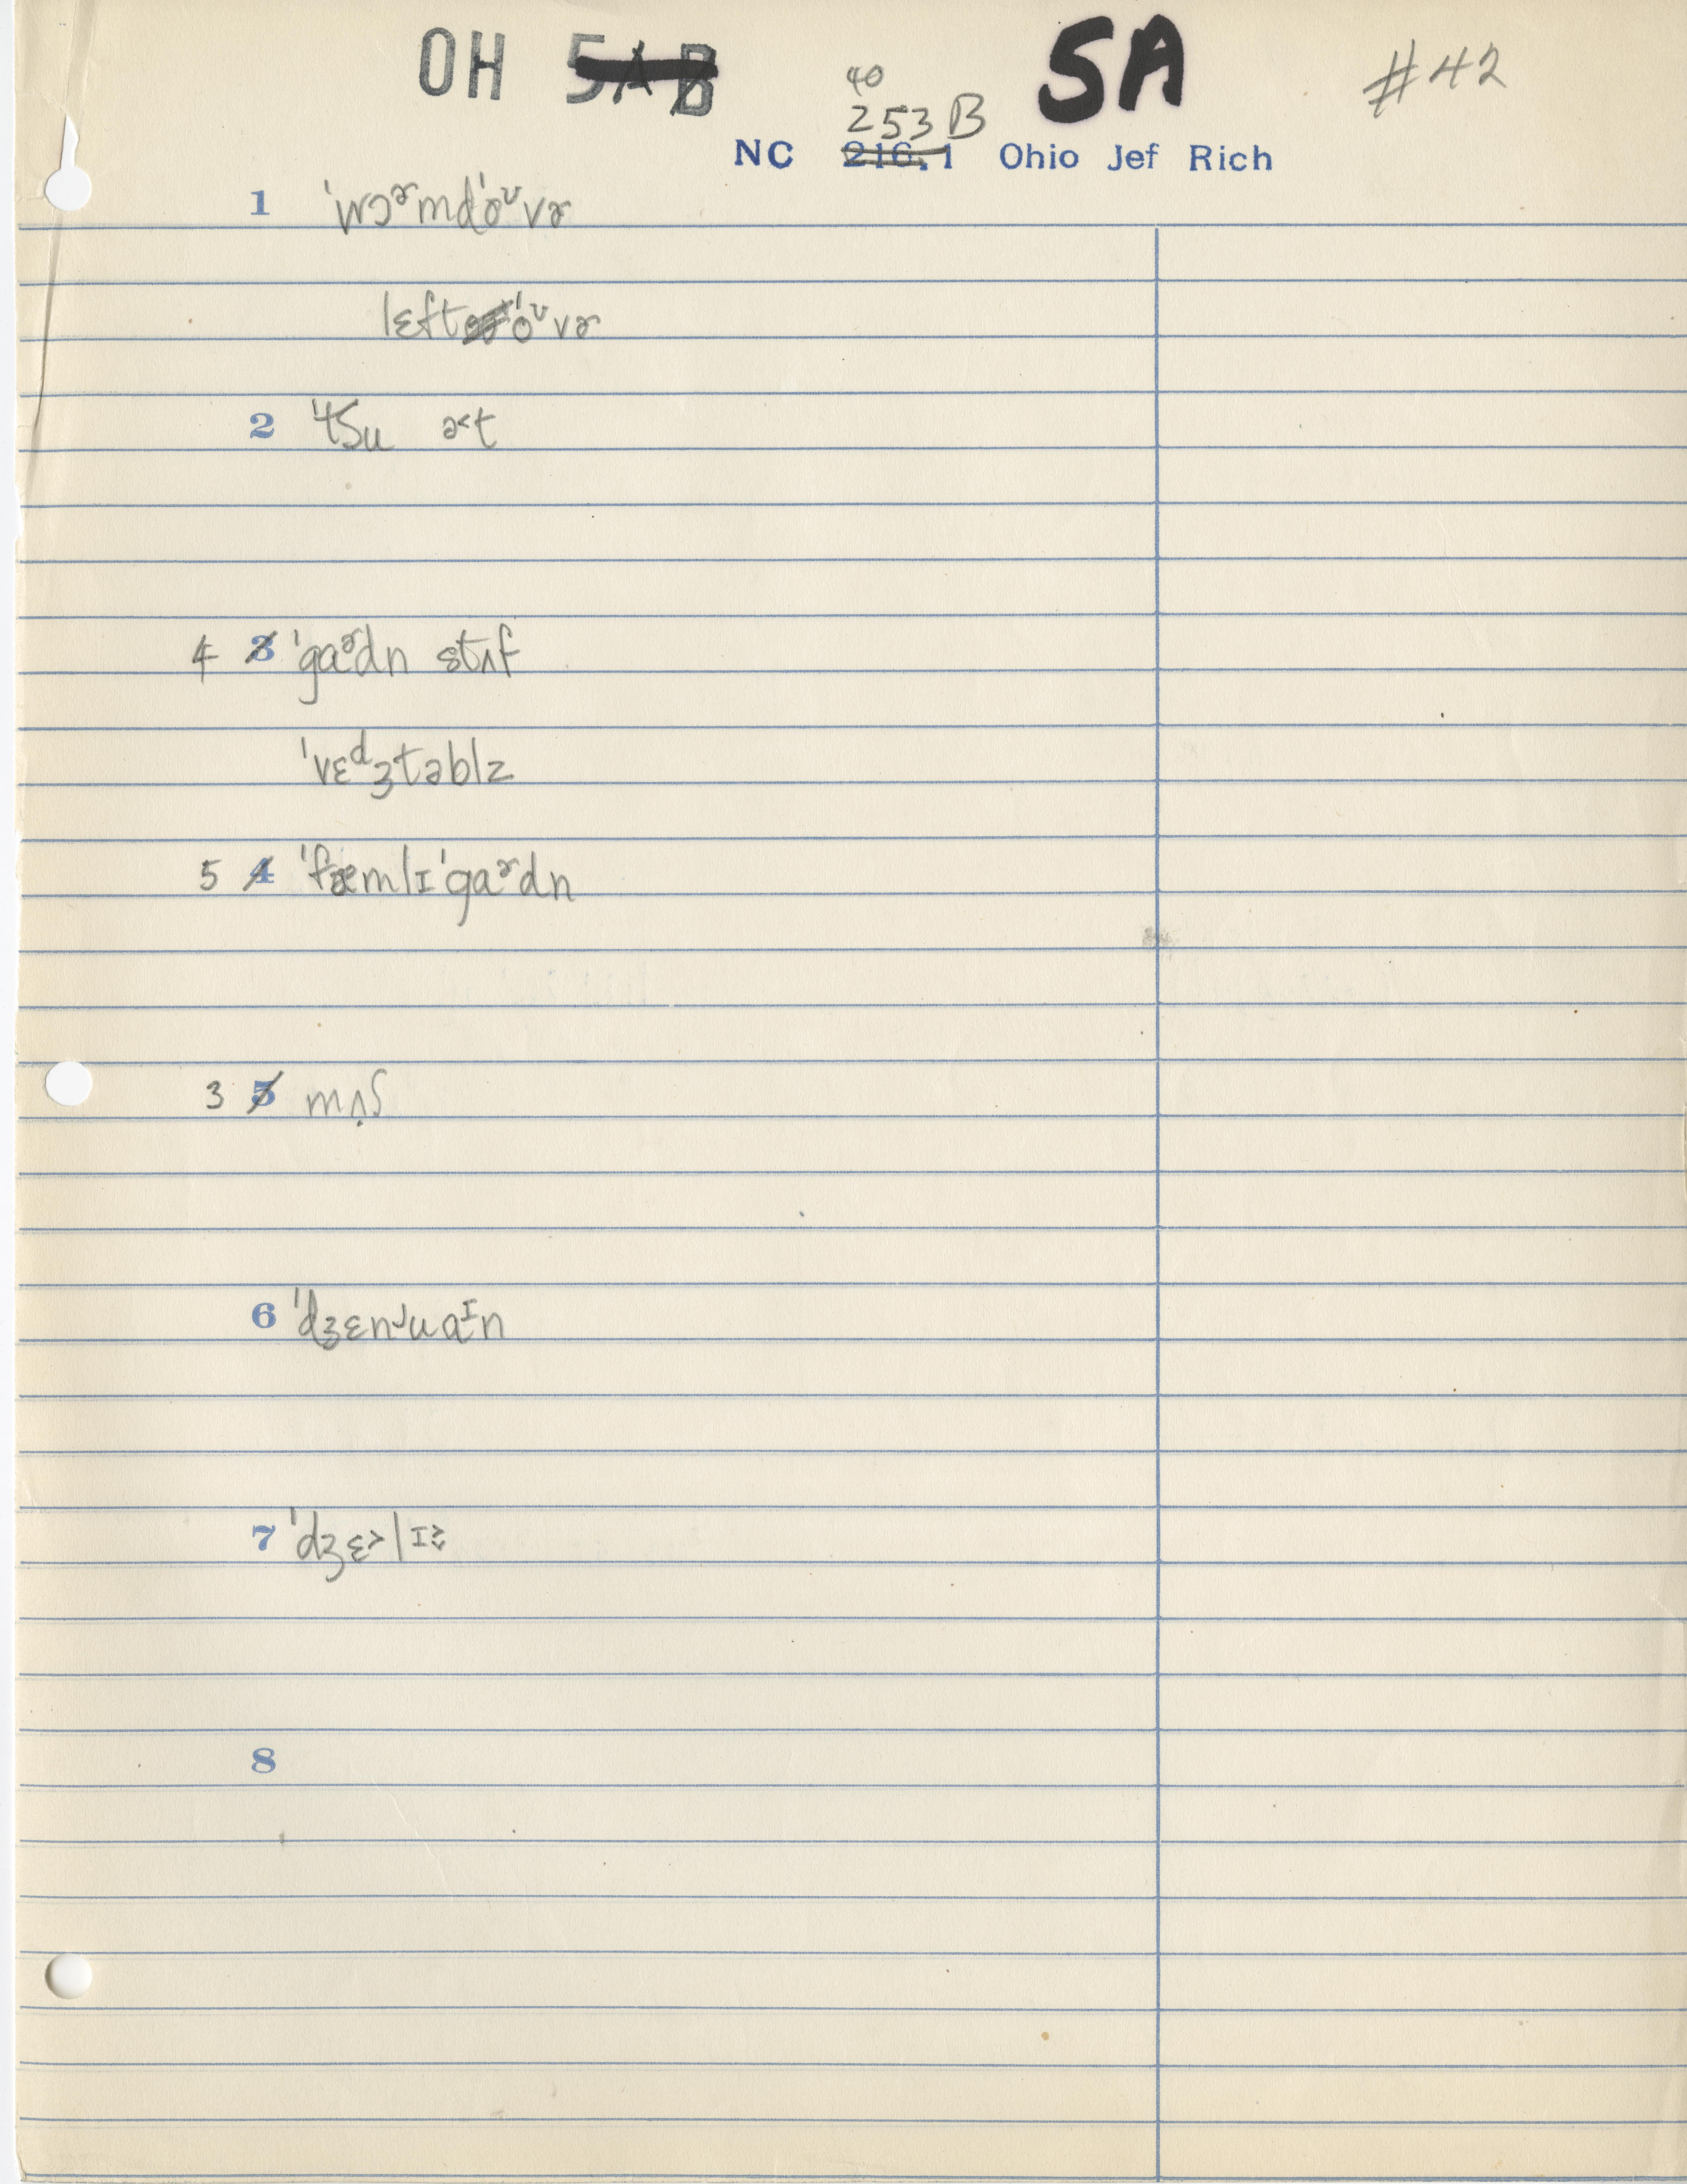 OH 5AB 5A #42
40
253 B
NC 216.1 Ohio Jef Rich
1 ˈwɔɚmdˈoᶷvɚ
lɛftˈoᶷvɚ
2 ˈtʃu ə˂t
4 3 ˈgaɚdn stʌf
ˈvɛᵈʒtəblz
5 4 ˈfæmlɪˈgaɚdn
3 5 mʌ̣ʃ
6 ˈdʒɛnʲuaᶦn
7 ˈdʒɛ˃lɪ
8